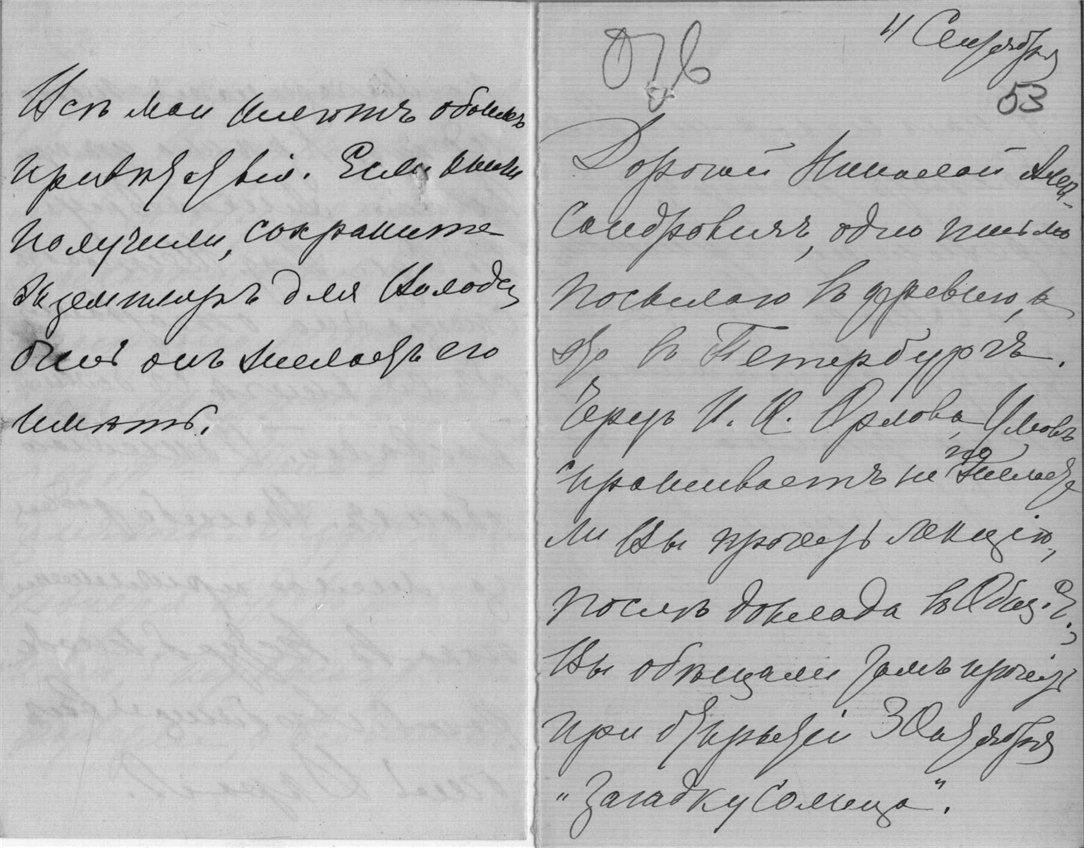 Всѣ мои шлютъ обоимъ
привѣтствія. Если книги
получили, сохраните
экземпляръ для Володи,
онъ желаетъ его
имѣть.
Отв
11 Сентября
53
Дорогой Николай Алек-
сандровичъ, одно письмо
посылаю въ деревню, а
это въ Петербургъ.
Черезъ Орлова Умовъ
спрашиваетъ не пожелаете
ли Вы прочесть лекцію,
послѣ доклада въ Общ.
Вы обѣщали тамъ прочесть
при открытіи 3 Октября
"Загадку Солнца".